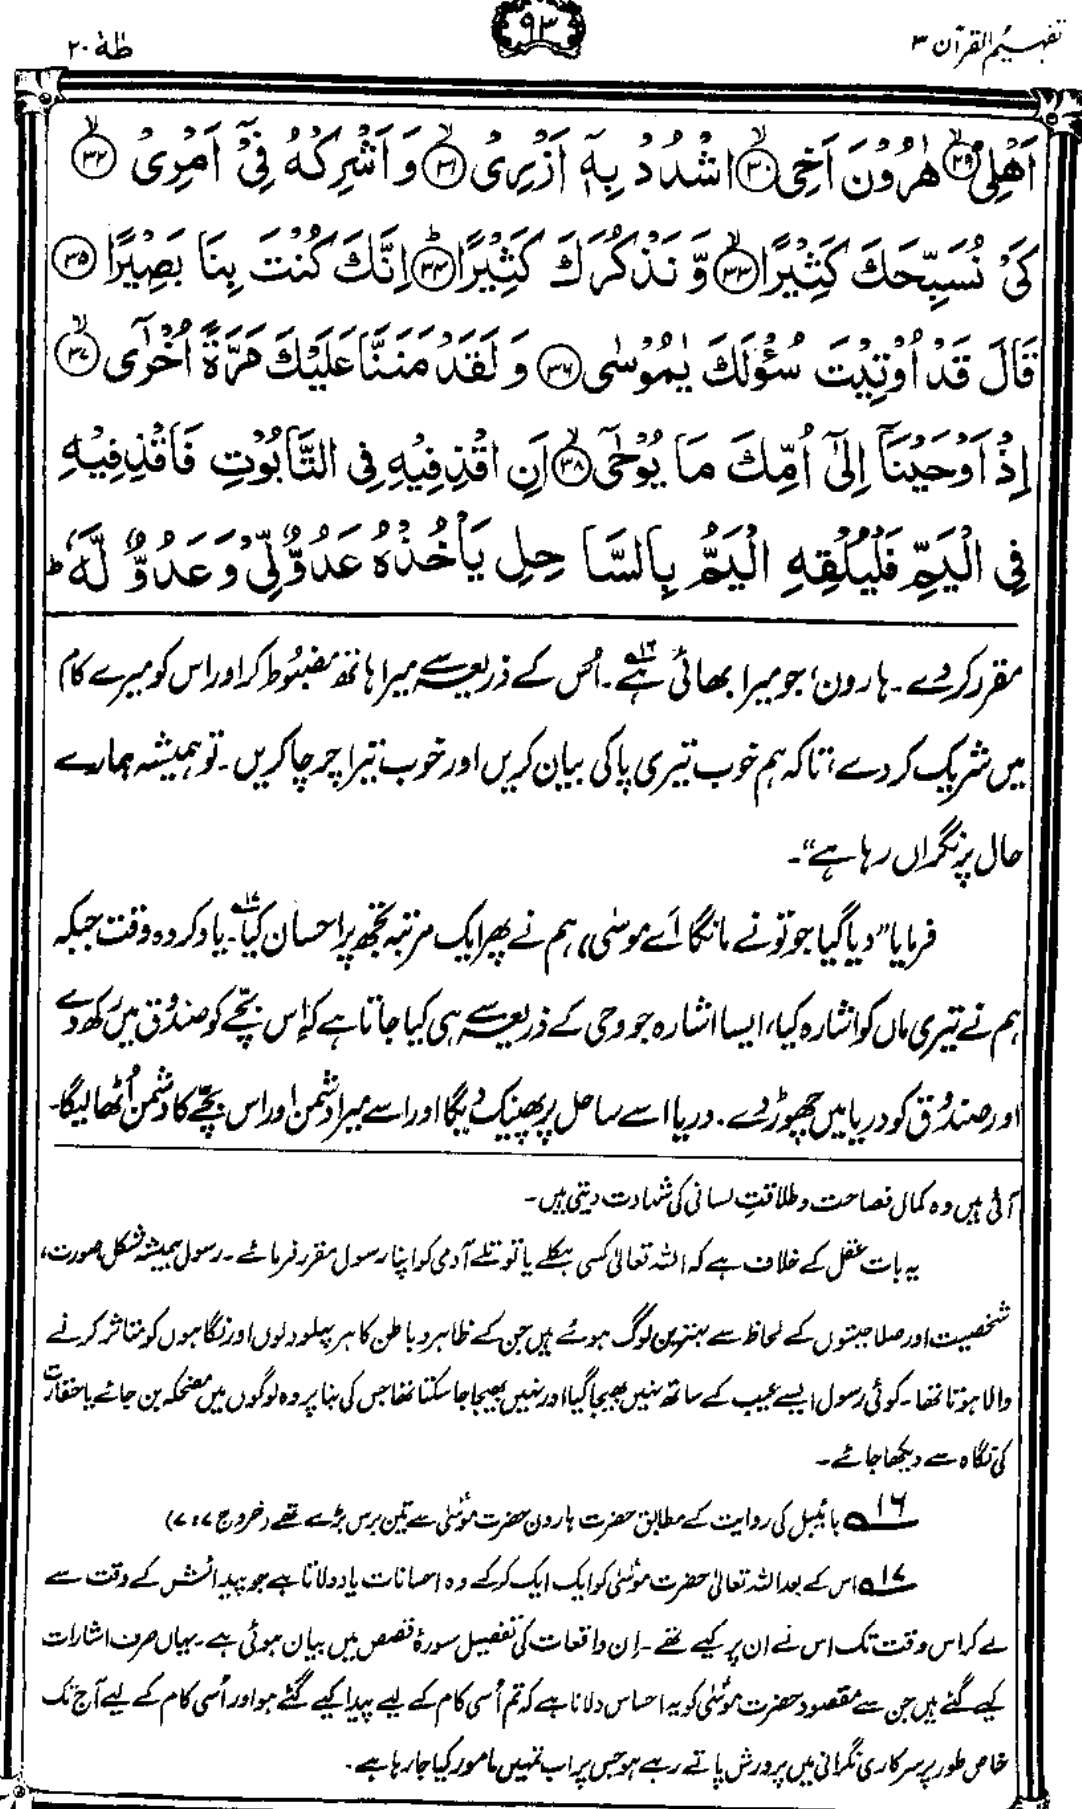 تفہیم القرآن ۳
۹۳
طٰہٰ ۲۰
اَهْلِیْ ﴿۲۹﴾ هٰرُوْنَ اَخِی ﴿۳۰﴾ اشْدُدْ بِهٖۤ اَزْرِیْ ﴿۳۱﴾ وَ اَشْرِكْهُ فِیْۤ اَمْرِیْ ﴿۳۲﴾
كَیْ نُسَبِّحَكَ كَثِیْرًا ﴿۳۳﴾ وَّ نَذْكُرَكَ كَثِیْرًا ﴿۳۴﴾ اِنَّكَ كُنْتَ بِنَا بَصِیْرًا ﴿۳۵﴾
قَالَ قَدْ اُوْتِیْتَ سُؤْلَكَ یٰمُوْسٰی ﴿۳۶﴾ وَ لَقَدْ مَنَنَّا عَلَیْكَ مَرَّةً اُخْرٰۤی ﴿۳۷﴾
اِذْ اَوْحَیْنَاۤ اِلٰۤی اُمِّكَ مَا یُوْحٰۤی ﴿۳۸﴾ اَنِ اقْذِفِیْهِ فِی التَّابُوْتِ فَاقْذِفِیْهِ
فِی الْیَمِّ فَلْیُلْقِهِ الْیَمُّ بِالسَّاحِلِ یَاْخُذْهُ عَدُوٌّ لِّیْ وَ عَدُوٌّ لَّهٗ ؕ
مقرر کر دے۔ ہارون، جو میرا بھائی ہے۱۶۔ اُس کے ذریعہ سے میرا ہاتھ مضبُوط کر اور اس کو میرے کام
میں شریک کر دے، تاکہ ہم خوب تیری پاکی بیان کریں اور خوب تیرا چرچا کریں۔ تو ہمیشہ ہمارے
حال پر نگراں رہا ہے“۔
فرمایا ”دیا گیا جو تو نے مانگا اَے موسٰی، ہم نے پھر ایک مرتبہ تجھ پر احسان کیا۱۷۔ یاد کر وہ وقت جبکہ
ہم نے تیری ماں کو اشارہ کیا، ایسا اشارہ جو وحی کے ذریعہ سے ہی کیا جاتا ہے کہ اِس بچّے کو صندُوق میں رکھ دے
اور صندُوق کو دریا میں چھوڑ دے۔ دریا اسے ساحل پر پھینک دیگا اور اسے میرا دشمن اور اس بچّے کا دشمن اُٹھا لیگا۔
آئی ہیں وہ کمال فصاحت و طلاقتِ لسانی کی شہادت دیتی ہیں۔
یہ بات عقل کے خلاف ہے کہ اللہ تعالیٰ کسی ہکلے یا توتلے آدمی کو اپنا رسول مقرر فرمائے۔ رسول ہمیشہ شکل، صورت،
شخصیت اور صلاحیتوں کے لحاظ سے بہترین لوگ ہوئے ہیں جن کے ظاہر و باطن کا ہر پہلو دلوں اور نگاہوں کو متاثر کرنے
والا ہوتا تھا۔ کوئی رسول ایسے عیب کے ساتھ نہیں بھیجا گیا اور نہیں بھیجا جا سکتا تھا جس کی بنا پر وہ لوگوں میں مضحکہ بن جائے یا حقارت
کی نگاہ سے دیکھا جائے۔
۱۶ بائیبل کی روایت کے مطابق حضرت ہارون حضرت موسٰیؑ سے تین برس بڑے تھے (خروج ۷:۷)
۱۷ اس کے بعد اللہ تعالیٰ حضرت موسٰیؑ کو ایک ایک کر کے وہ احسانات یاد دلاتا ہے جو پیدائش کے وقت سے
لے کر اس وقت تک اس نے ان پر کیے تھے۔ اِن واقعات کی تفصیل سورۂ قصص میں بیان ہوئی ہے۔ یہاں صرف اشارات
کیے گئے ہیں جن سے مقصود حضرت موسٰیؑ کو یہ احساس دلانا ہے کہ تم اُسی کام کے لیے پیدا کیے گئے ہو اور اُسی کام کے لیے آج تک
خاص طور پر سرکاری نگرانی میں پرورش پاتے رہے ہو جس پر اب تمہیں مامور کیا جا رہا ہے۔